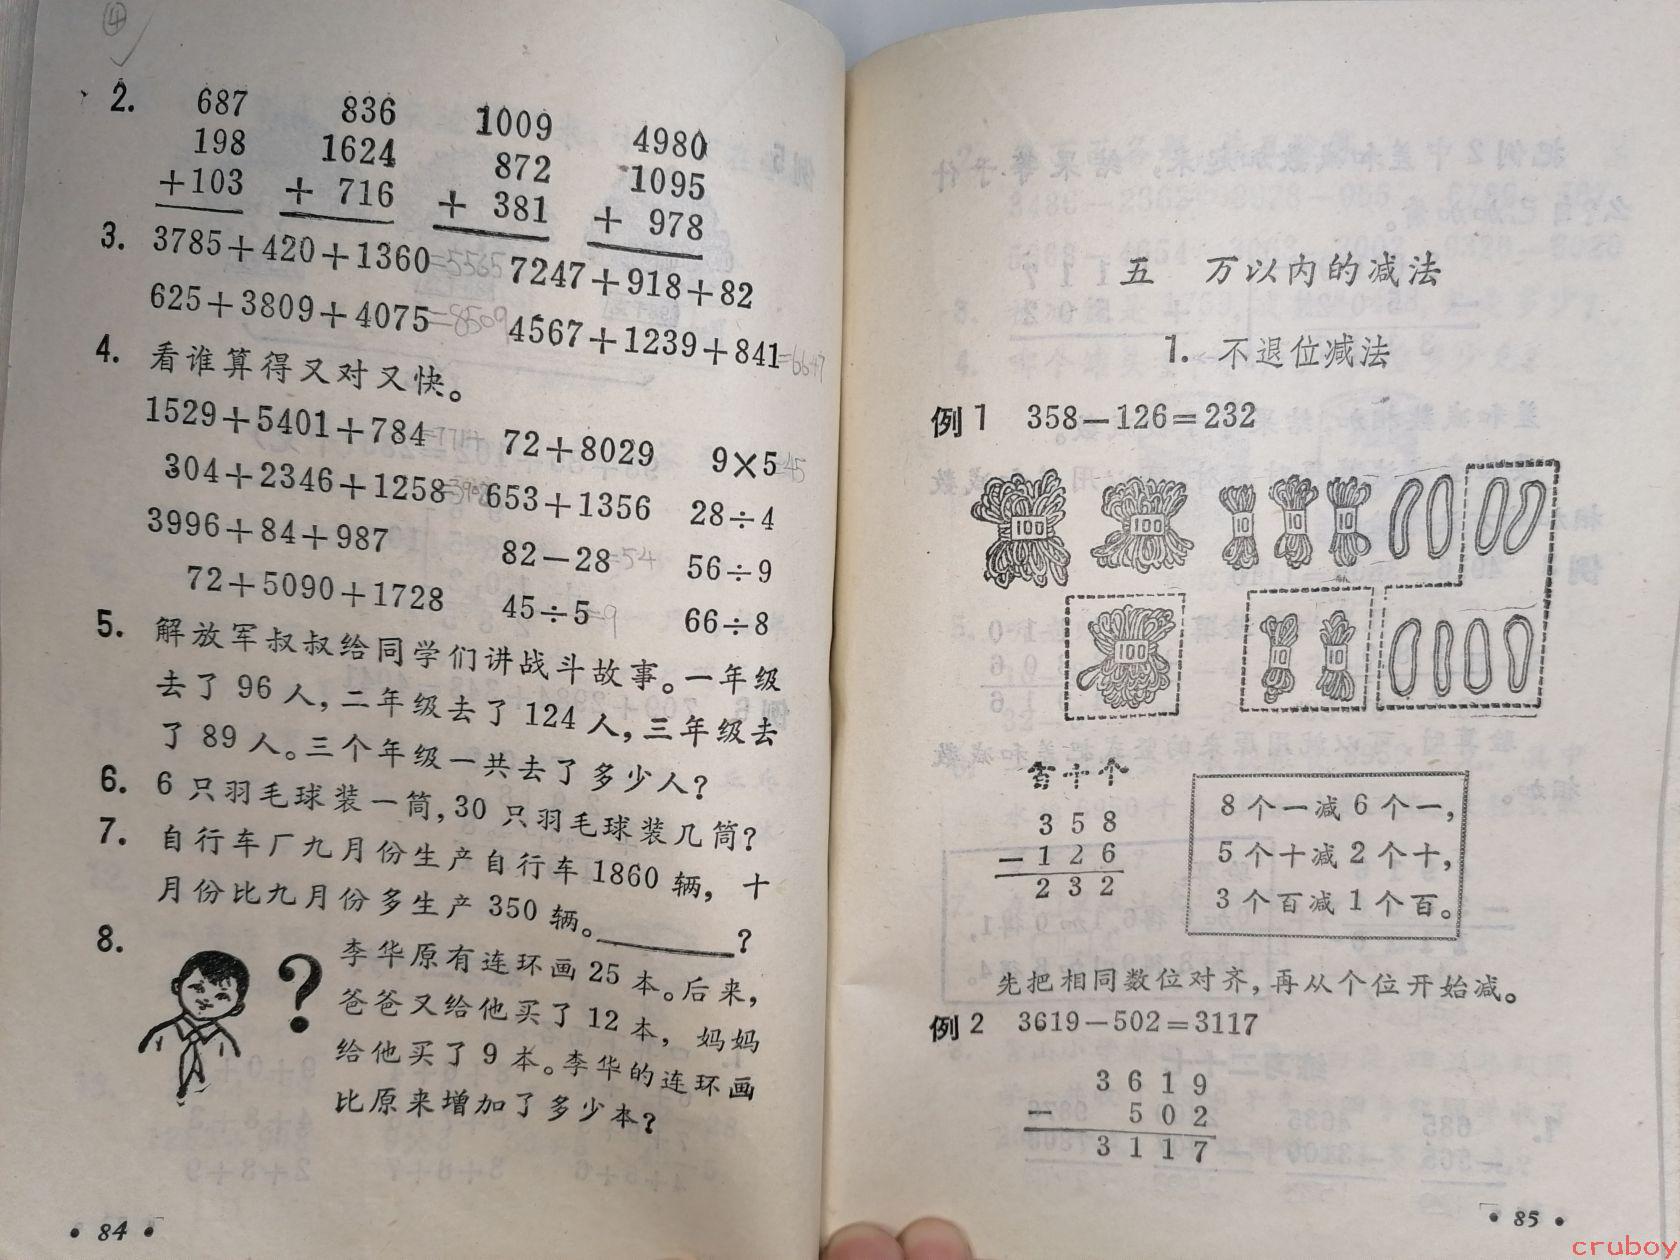 ④
2.
687 836 1009 4980
198 1624 872 1095
+103 + 716 + 381 + 978
3. 3785+420+1360=5565 7247+918+82
625+3809+4075=8509 4567+1239+841=6647
4. 看谁算得又对又快。
1529+5401+784 72+8029 9×5=45
304+2346+1258=3908 653+1356 28÷4
3996+84+987 82-28=54 56÷9
72+5090+1728 45÷5=9 66÷8
5. 解放军叔叔给同学们讲战斗故事。一年级
去了 96 人,二年级去了 124 人,三年级去
了 89 人。三个年级一共去了多少人?
6. 6 只羽毛球装一筒,30 只羽毛球装几筒?
7. 自行车厂九月份生产自行车 1860 辆, 十
月份比九月份多生产 350 辆。________?
8. ?
李华原有连环画 25 本。后来,
爸爸又给他买了 12 本, 妈妈
给他买了 9 本。李华的连环画
比原来增加了多少本?
• 84 •
五 万以内的减法
1. 不退位减法
例 1 358-126=232
100 100 10 10 10
100 10 10
百 十 个
3 5 8
-1 2 6
2 3 2
8 个一减 6 个一,
5 个十减 2 个十,
3 个百减 1 个百。
先把相同数位对齐,再从个位开始减。
例 2 3619-502=3117
3 6 1 9
- 5 0 2
3 1 1 7
• 85 •
cruboy